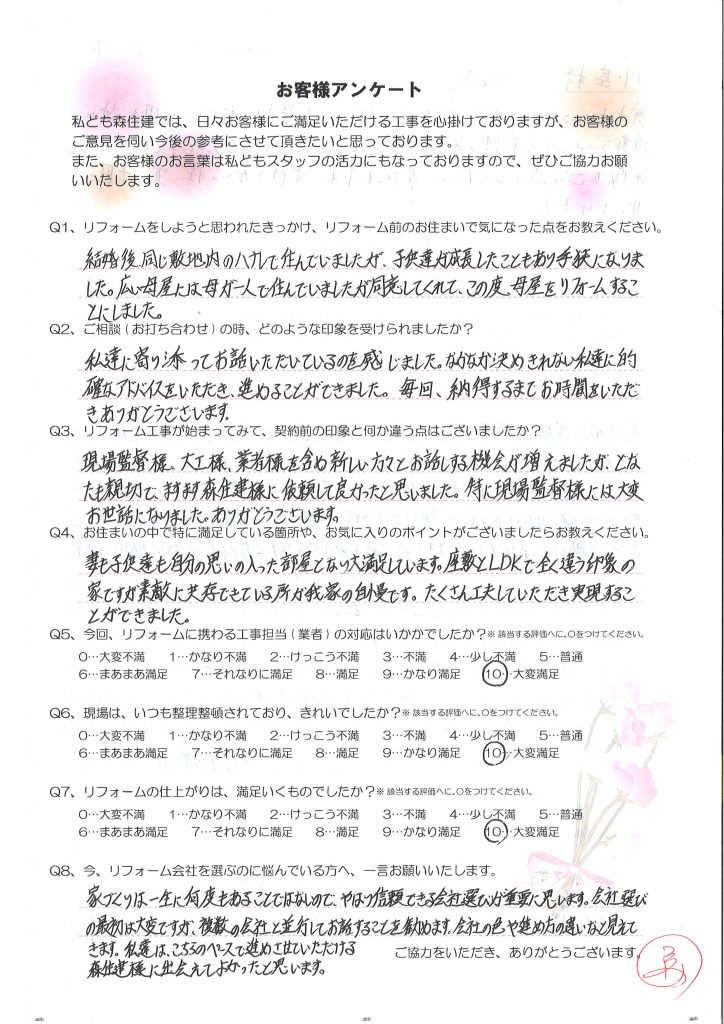 お客様アンケート
私ども森住建では、日々お客様にご満足いただける工事を心掛けておりますが、お客様の
ご意見を伺い今後の参考にさせて頂きたいと思っております。
また、お客様のお言葉は私どもスタッフの活力にもなっておりますので、ぜひご協力お願
いいたします。
Q1、リフォームをしようと思われたきっかけ、リフォーム前のお住まいで気になった点をお教えください。
結婚後、同じ敷地内のハナレで住んでいましたが、子供達が成長したこともあり手狭になりま
した。広い母屋には母が一人で住んでいましたが同意してくれて、この度、母屋をリフォームするこ
とにしました。
Q2、ご相談(お打ち合わせ)の時、どのような印象を受けられましたか?
私達に寄り添ってお話いただいているのを感じました。なかなか決めきれない私達に的
確なアドバイスをいただき、進めることができました。毎回、納得するまでお時間をいただ
きありがとうございます。
Q3、リフォーム工事が始まってみて、契約前の印象と何か違う点はございましたか?
現場監督様、大工様、業者様を含め新しい方々とお話しする機会が増えましたが、どな
たも親切で、ますます森住建様に依頼して良かったと思いました。特に現場監督様には大変
お世話になりました。ありがとうございます。
Q4、お住まいの中で特に満足している箇所や、お気に入りのポイントがございましたらお教えください。
妻も子供達も自分の思いの入った部屋となり大満足しています。座敷とLDKで全く違う印象の
家ですが素敵に共存できている所が我家の自慢です。たくさん工夫していただき実現するこ
とができました。
Q5、今回、リフォームに携わる工事担当(業者)の対応はいかかでしたか?※該当する評価へに、○をつけてください。
0…大変不満 1…かなり不満 2…けっこう不満 3…不満 4…少し不満 5…普通
6…まあまあ満足 7…それなりに満足 8…満足 9…かなり満足 10…大変満足
Q6、現場は、いつも整理整頓されており、きれいでしたか?※該当する評価へに、○をつけてください。
0…大変不満 1…かなり不満 2…けっこう不満 3…不満 4…少し不満 5…普通
6…まあまあ満足 7…それなりに満足 8…満足 9…かなり満足 10…大変満足
Q7、リフォームの仕上がりは、満足いくものでしたか?※該当する評価へに、○をつけてください。
0…大変不満 1…かなり不満 2…けっこう不満 3…不満 4…少し不満 5…普通
6…まあまあ満足 7…それなりに満足 8…満足 9…かなり満足 10…大変満足
Q8、今、リフォーム会社を選ぶのに悩んでいる方へ、一言お願いいたします。
家づくりは一生に何度もあることではないので、やはり信頼できる会社選びが重要に思います。会社選び
の最初は大変ですが、複数の会社と並行してお話することを勧めます。会社の色や進め方の違いなど見えて
きます。私達は、こちらのペースで進めさせていただける
森住建様に出会えてよかったと思います。
ご協力をいただき、ありがとうございます。